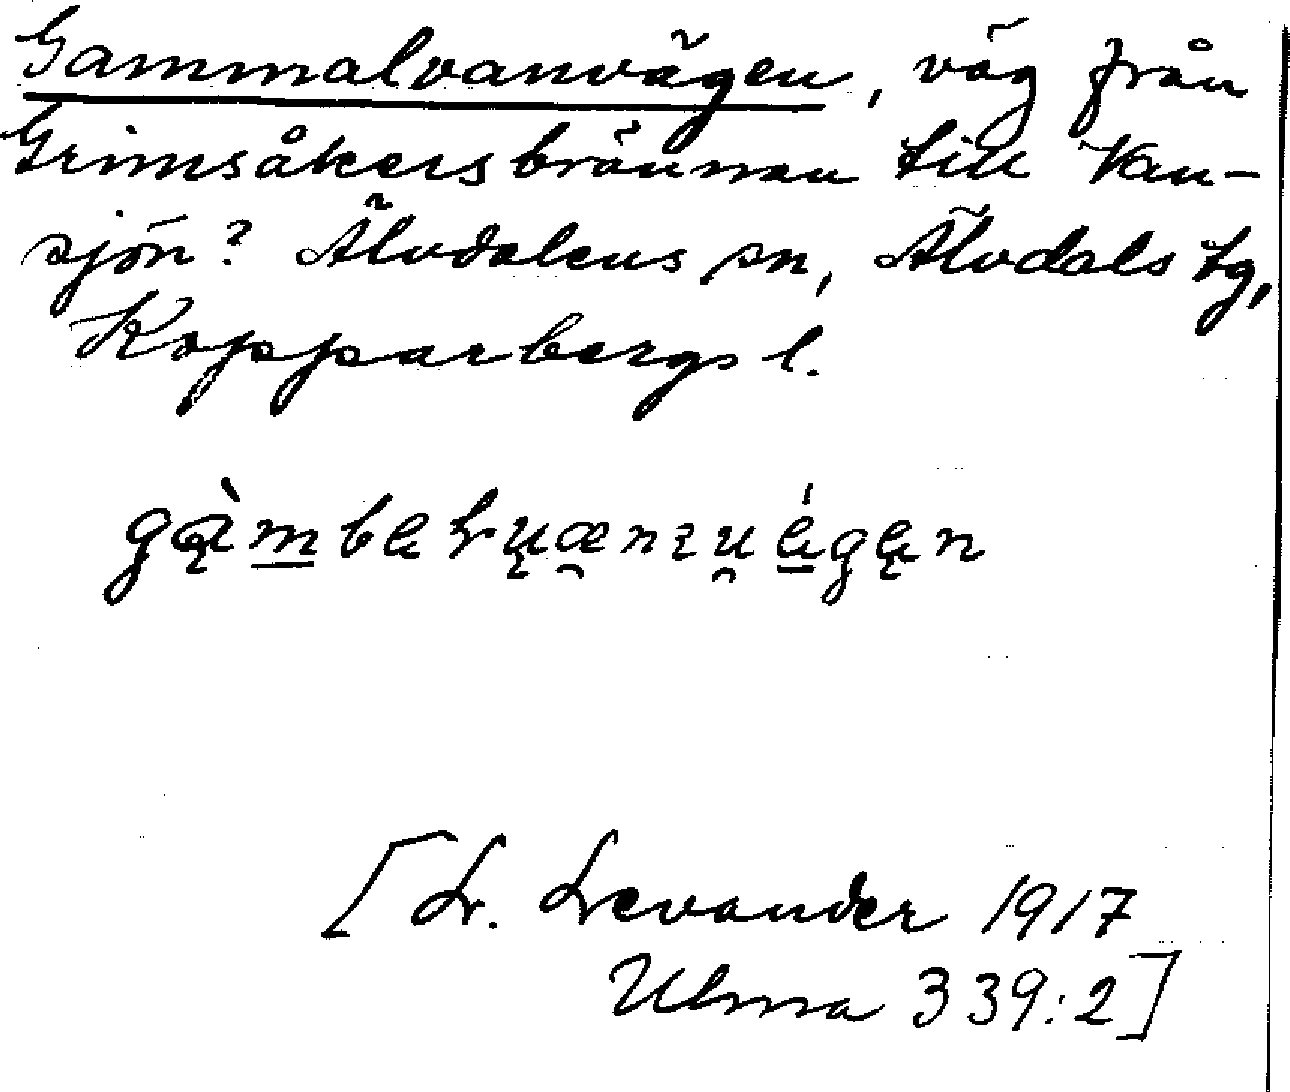 Gammalvanvägen, väg från
Grimsåkersbrännan till Van-
sjön? Älvdalens sn, Älvdals tg,
Kopparbergs l.
[L. Levander 1917
Ulma 339:2]